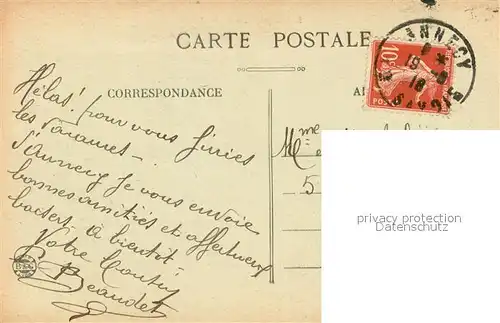 CARTE POSTALE
ANNECY
10c
CORRESPONDANCE
Hélas! pour vous finies
les vacances -
d'Annecy je vous envoie
bonnes amitiés et affectueux
baisers, à bientôt
Votre Cousin
Beaudet
Mme
5
B&G
privacy protection
Datenschutz